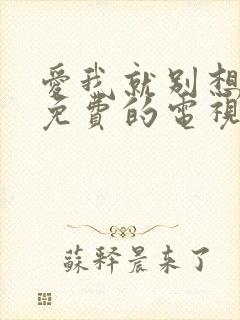 愛我就別想
免費的電視
蘇釋晨来了